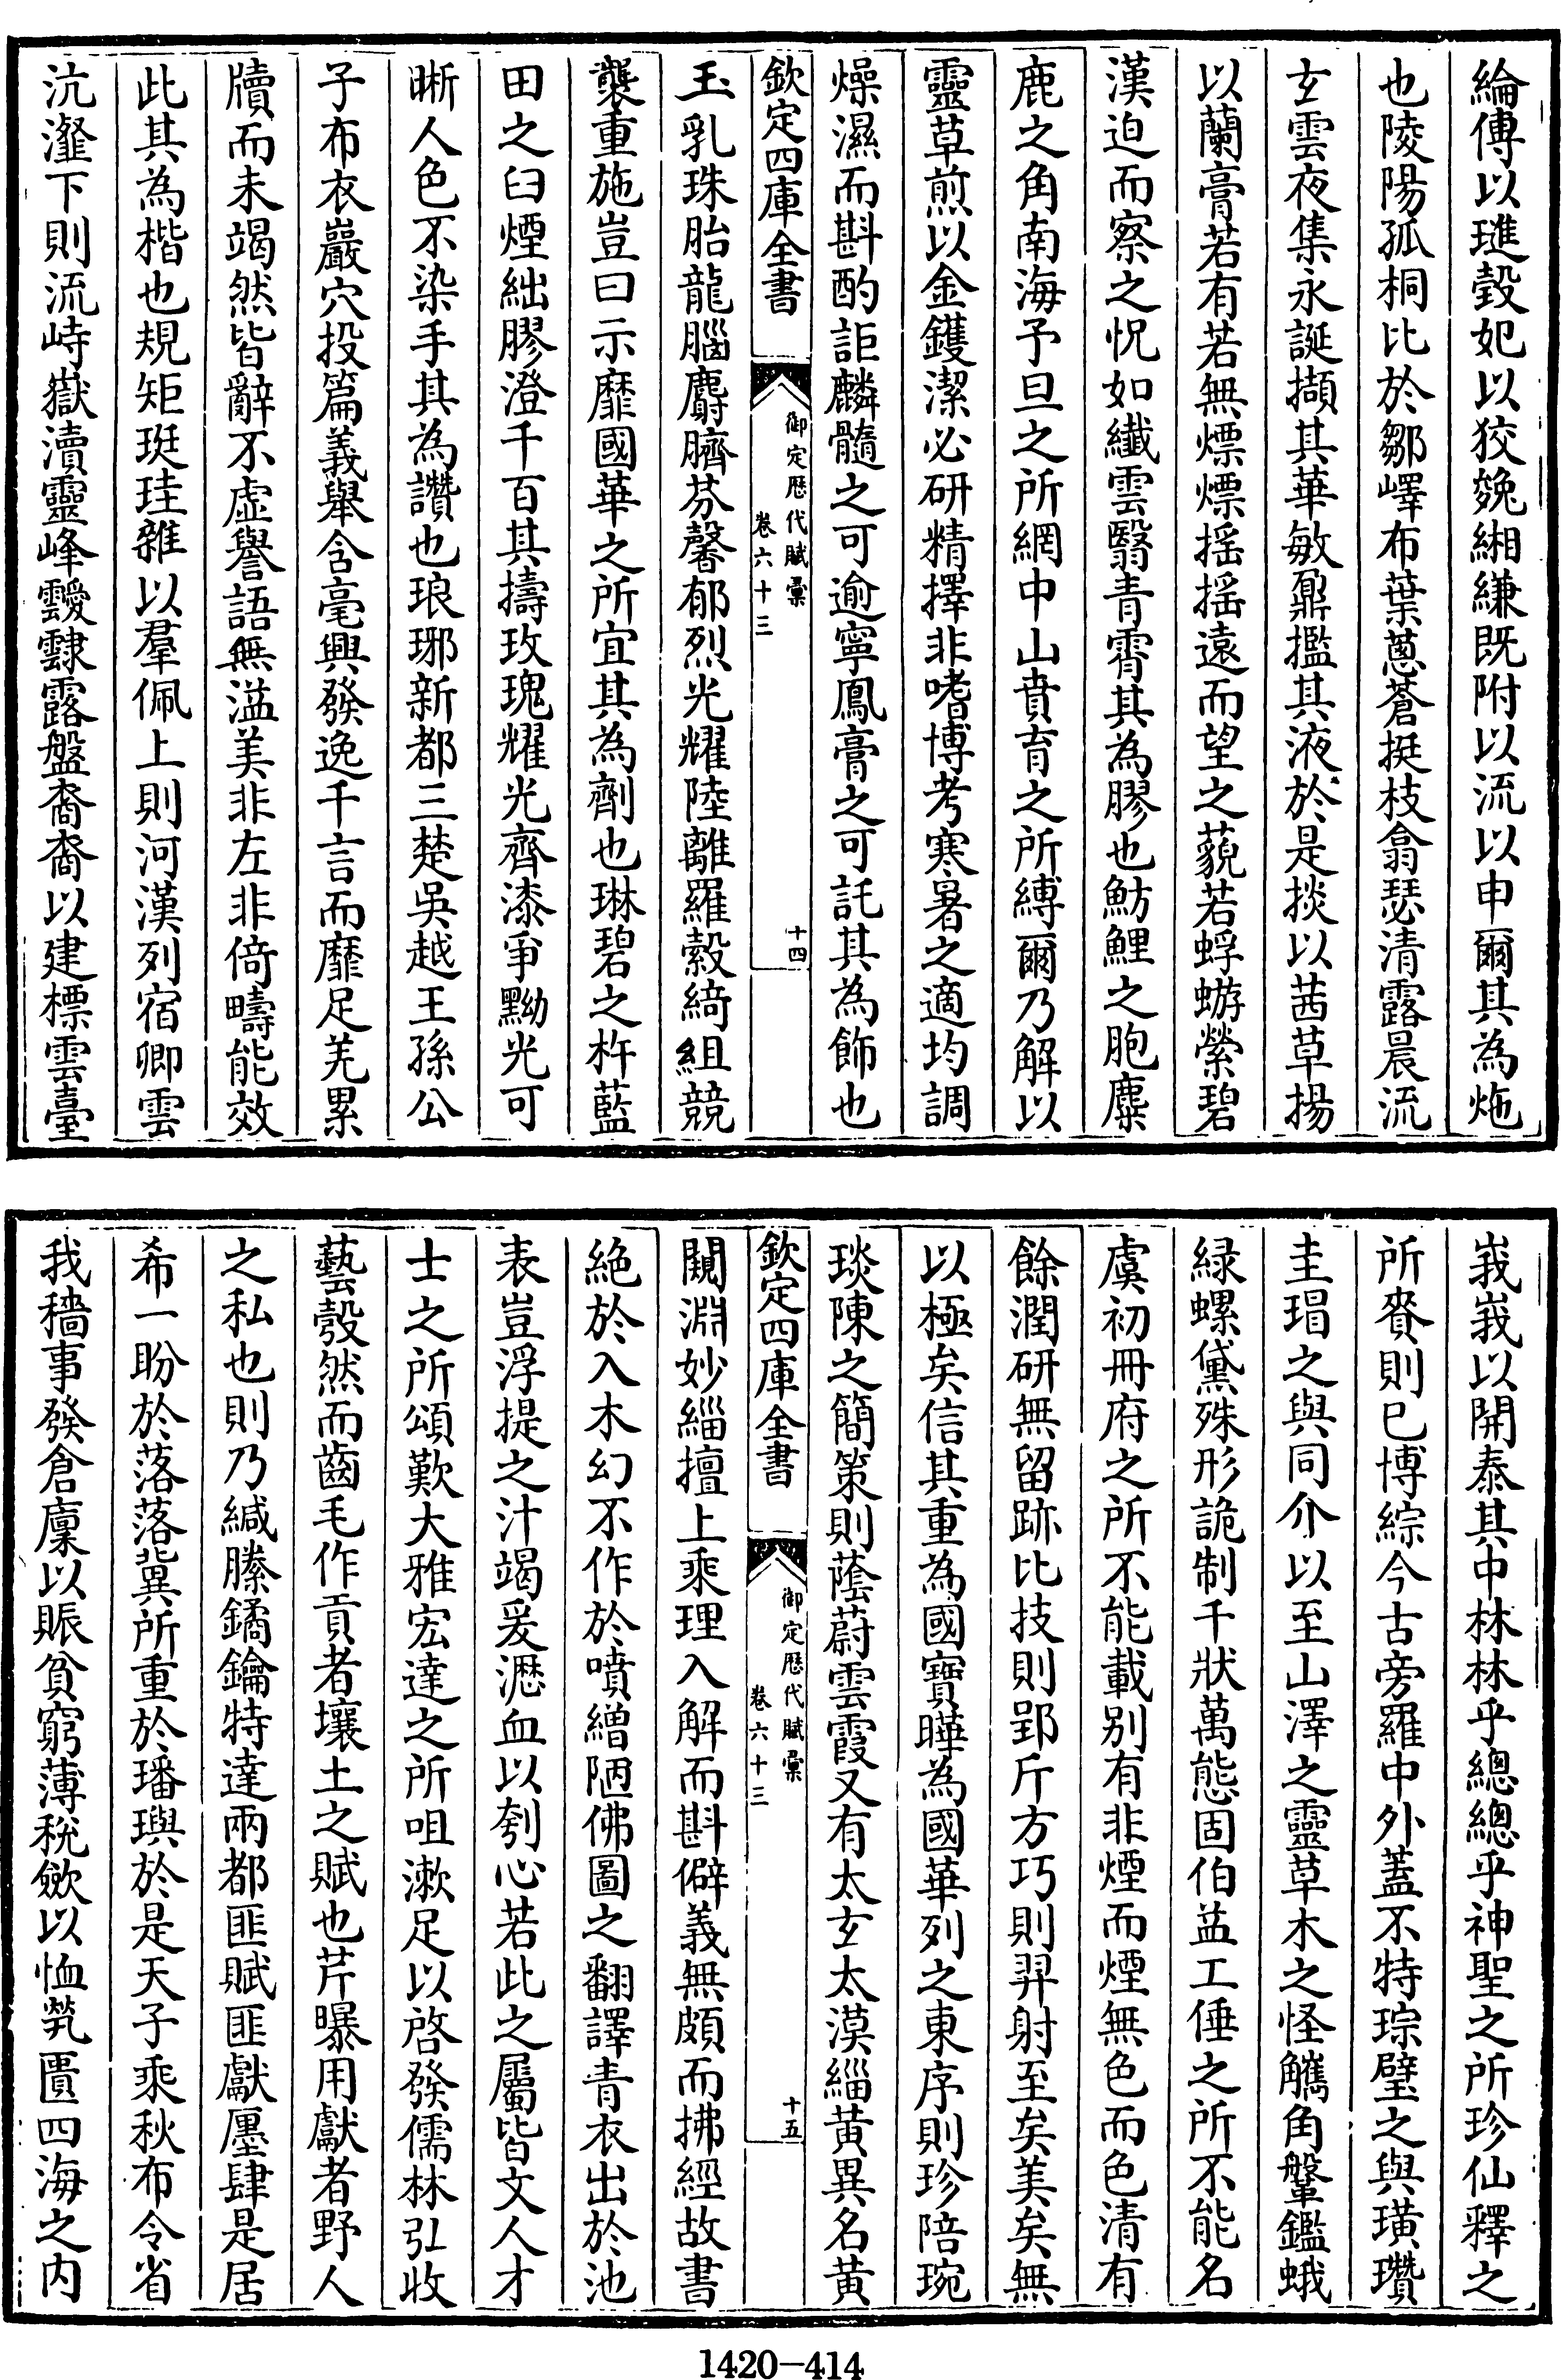 綸傅以璡瑴妃以狡㝹緗縑既附以流以申爾其為炧
也陵陽孤桐比於鄒嶧布葉蔥蒼挺枝翕瑟清露晨流
玄雲夜集永誕擷其華敏鼐擥其液於是掞以茜草揚
以蘭膏若有若無熛熛摇摇遠而望之藐若蜉蝣縈碧
漢迫而察之怳如纎雲翳青霄其為膠也魴鯉之胞麋
鹿之角南海予旦之所網中山賁育之所縛爾乃解以
靈草煎以金鑊潔必研精擇非嗜博考寒暑之適均調
燥濕而斟酌詎麟髓之可逾寧鳳膏之可託其為飾也
欽定四庫全書
御定歴代賦彙
卷六十三
十四
玉乳珠胎龍腦麝臍芬馨郁烈光耀陸離羅縠綺組競
襲重施豈曰示靡國華之所宜其為劑也琳碧之杵藍
田之臼煙絀膠澄千百其擣玫瑰耀光齊漆爭黝光可
晣人色不染手其為讚也琅琊新都三楚吳越王孫公
子布衣巖穴投篇義舉含毫興發逸千言而靡足羌累
牘而未竭然皆辭不虛譽語無溢美非左非倚疇能效
此其為楷也規矩珽珪雜以羣佩上則河漢列宿卿雲
沆瀣下則流峙嶽瀆靈峰靉靆露盤裔裔以建標雲臺
峩峩以開泰其中林林乎總總乎神聖之所珍仙釋之
所賚則已博綜今古旁羅中外蓋不特琮璧之與璜瓚
圭瑁之與同介以至山澤之靈草木之怪觿角鞶鑑蛾
緑螺黛殊形詭制千狀萬態固伯益工倕之所不能名
虞初冊府之所不能載别有非煙而煙無色而色清有
餘潤研無留跡比技則郢斤方巧則羿射至矣美矣無
以極矣信其重為國寶暐為國華列之東序則珍陪琬
琰陳之簡策則蔭蔚雲霞又有太玄太漠緇黃異名黃
欽定四庫全書
御定歴代賦彙
卷六十三
十五
闚淵妙緇擅上乘理入解而斟僻義無頗而拂經故書
絶於入木幻不作於噴繒陋佛圖之翻譯青衣出於池
表豈浮提之汁竭爰瀝血以刳心若此之屬皆文人才
士之所頌歎大雅宏達之所咀漱足以啓發儒林引收
藝瑴然而齒毛作貢者壤土之賦也芹曝用獻者野人
之私也則乃緘縢鐍鑰特達兩都匪賦匪獻㕓肆是居
希一盼於落落冀所重於璠璵於是天子乘秋布令省
我穡事發倉廩以賑貧窮薄稅斂以恤煢匱四海之内
1420-414